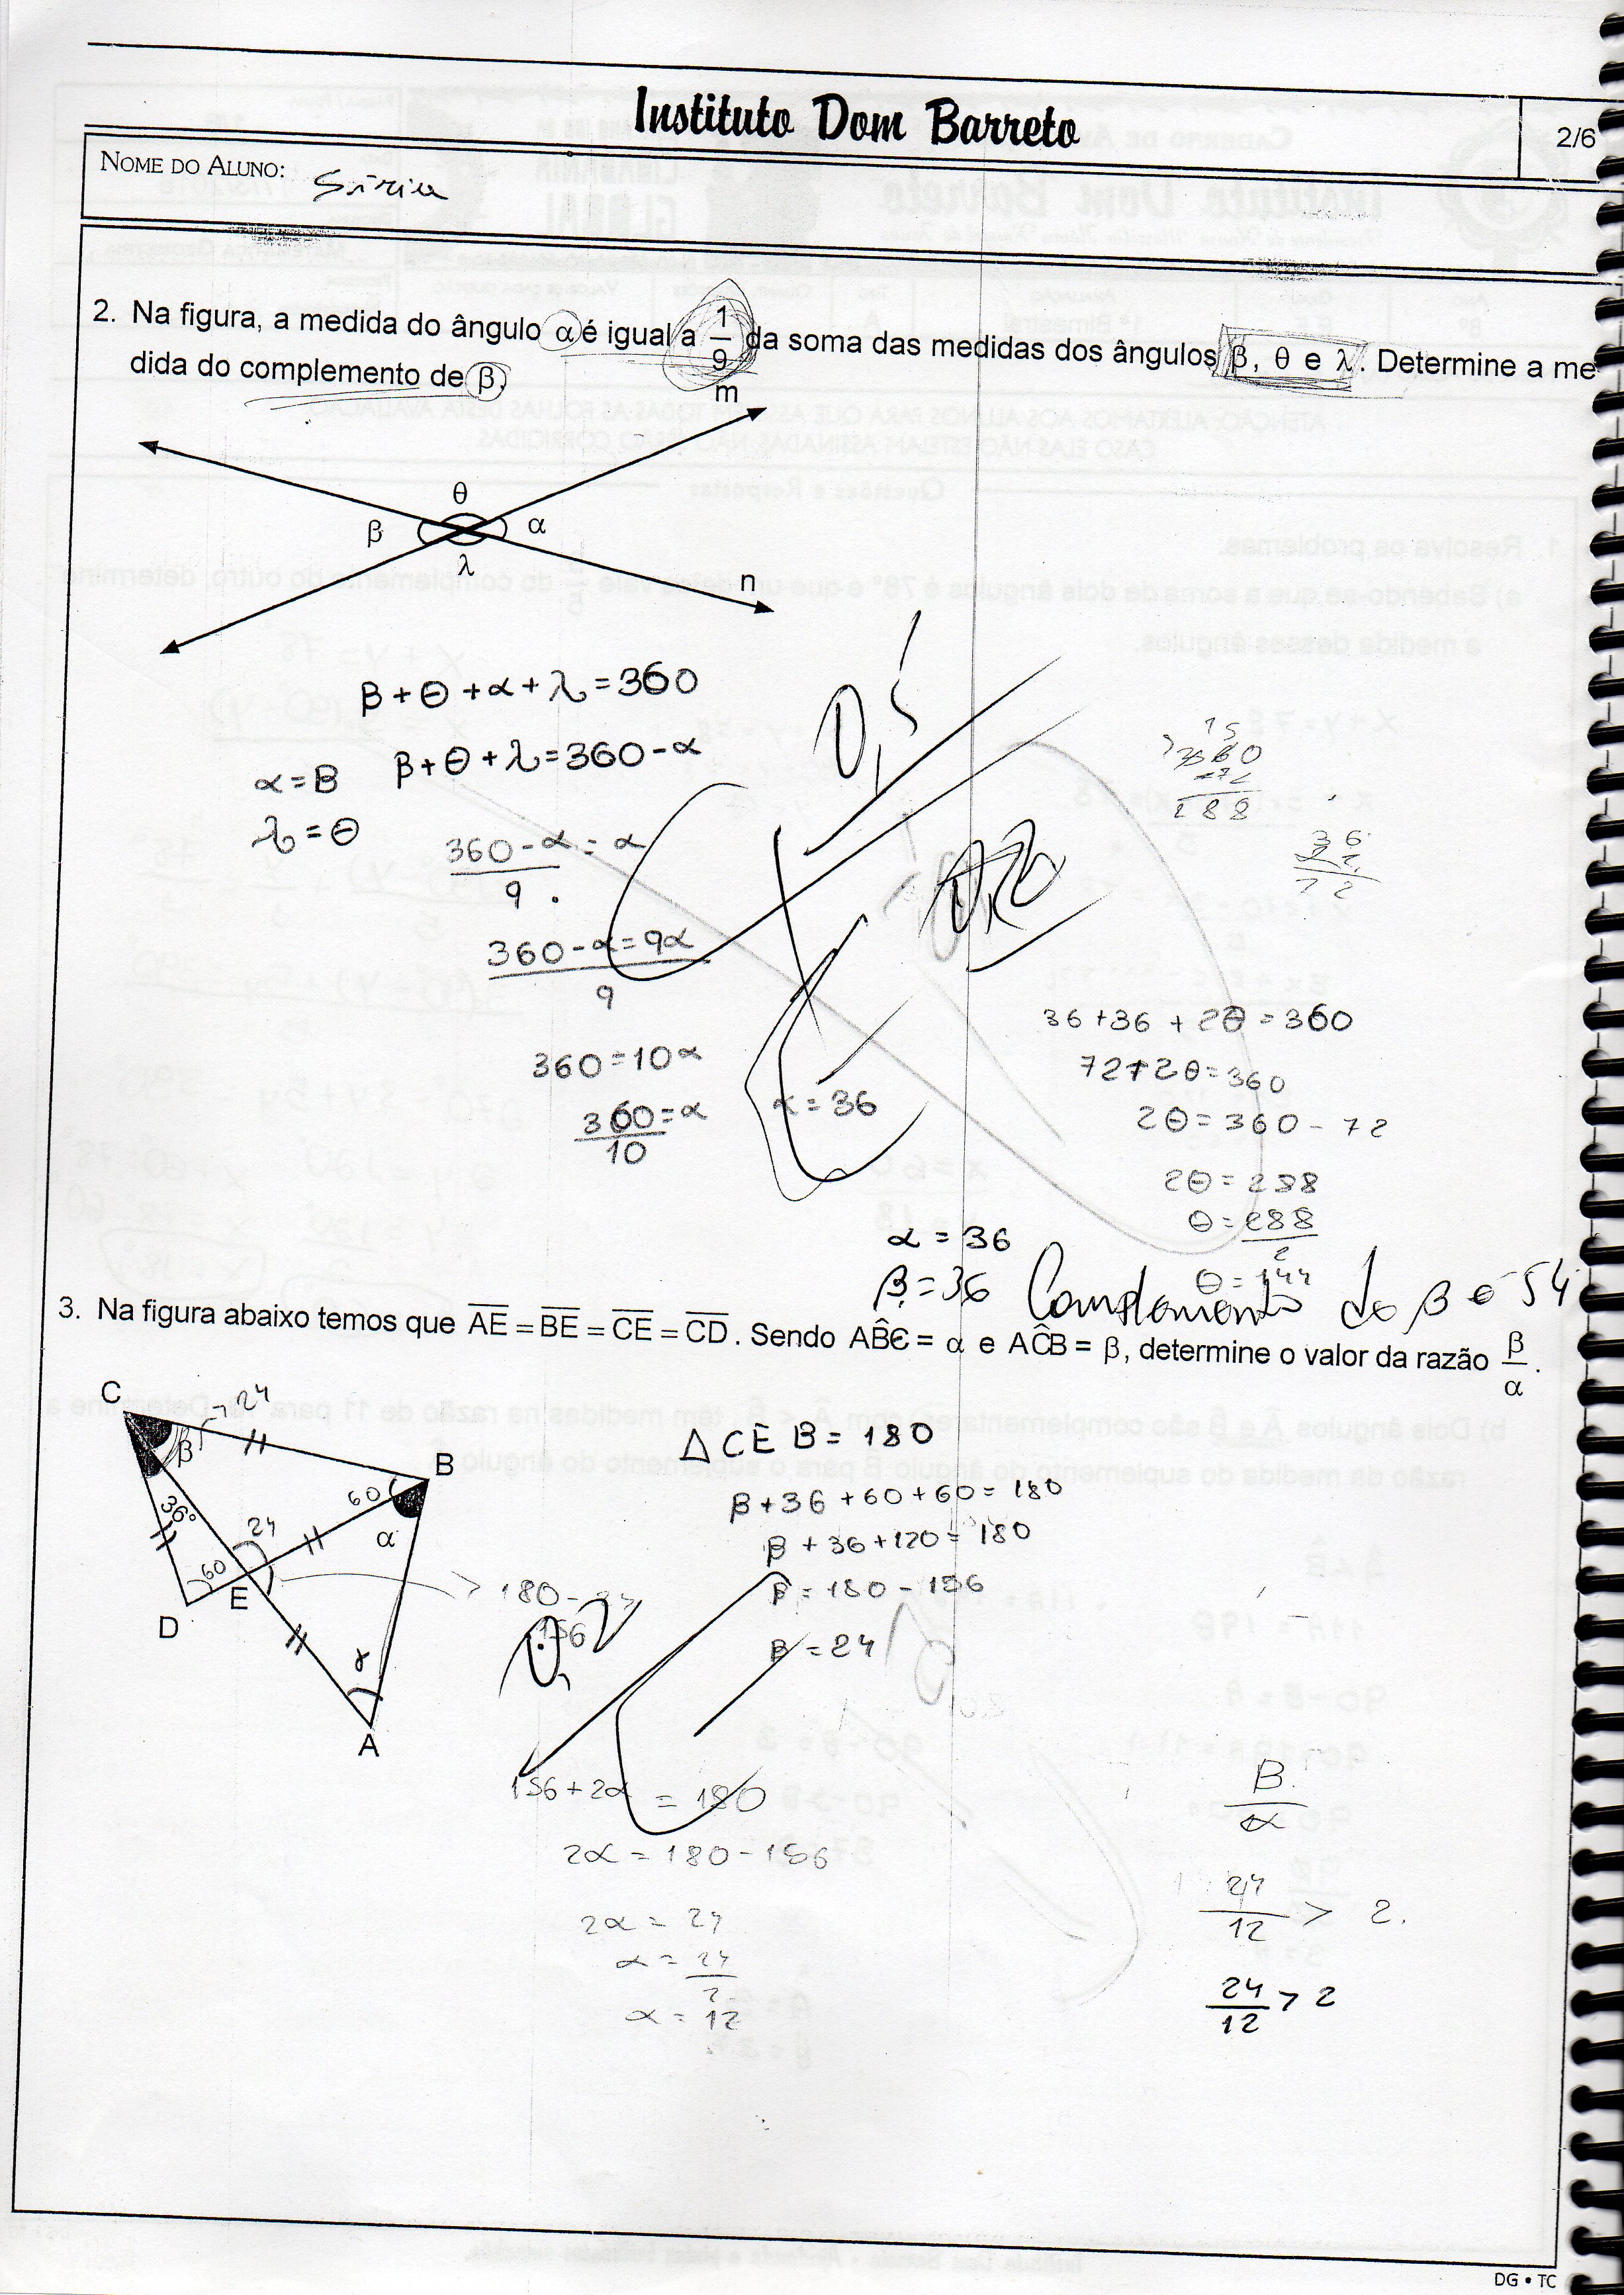 Instituto Dom Barreto
2/6
NOME DO ALUNO:
2. Na figura, a medida do ângulo α é igual a 1/9 da soma das medidas dos ângulos β, θ e λ. Determine a me
dida do complemento de β.
m
θ
β
α
λ
n
β+θ+α+λ=360
β+θ+λ=360-α
α=B
λ=θ
360-α/9=α
360-α=9α/9
360=10α
360/10=α
α=36
0,5
360
72
288
36
2
72
36+36+2θ=360
72+2θ=360
2θ=360-72
2θ=288
θ=288/2
θ=144
α=36
β=36 Complemento de β é 54
3. Na figura abaixo temos que AE = BE = CE = CD. Sendo AB̂C = α e AĈB = β, determine o valor da razão β/α.
C
24
β
B
60
36°
24
α
60
E
D
A
ΔCEB=180
β+36+60+60=180
β+36+120=180
β=180-156
β=24
180-24
156
0,2
156+2α=180
2α=180-156
2α=24
α=24/2
α=12
B/α
24/12 > 2.
24/12 > 2
DG • TC